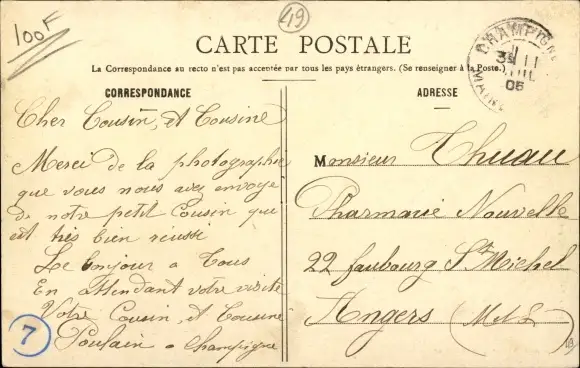 100F
49
CARTE POSTALE
La Correspondance au recto n'est pas acceptée par tous les pays étrangers. (Se renseigner à la Poste.)
CORRESPONDANCE
Cher Cousin, et Cousine
Merci de la photographie
que vous nous avez envoyé
de notre petit Cousin que
est très bien réussi
Le bonjour a Tous
En Attendant votre visite
Votre Cousin, et Cousine
Poulain a Champigné
7
ADRESSE
CHAMPIGNÉ
05
Monsieur Thuau
Pharmacie Nouvelle
22 faubourg St Michel
Angers (M et L)